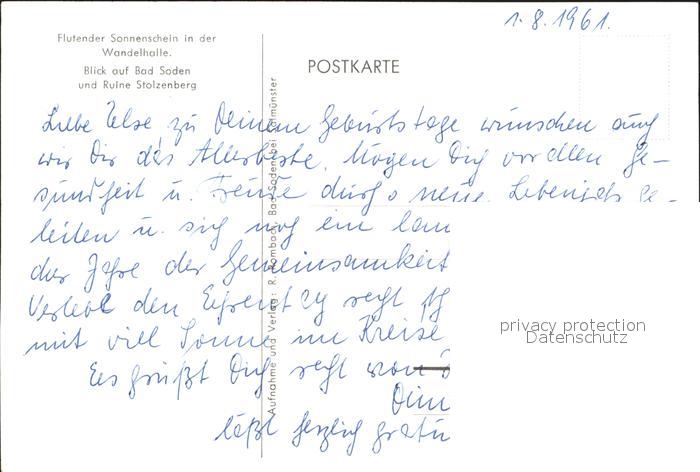 1.8.1961.
Flutender Sonnenschein in der
Wandelhalle.
Blick auf Bad Soden
und Ruine Stolzenberg
POSTKARTE
Aufnahme und Verlag: R. Rombach, Bad Soden bei Salmünster
Liebe Else, zu Deinem Geburtstage wünschen auch
wir Dir das Allerbeste. Mögen Dich vor allem Ge-
sundheit u. Freude durchs neue Lebensjahr ge-
leiten u. sich noch ein
der Jahre der Gemeinsamkeit
Verlebe den Ehrentag recht
mit viel Sonne im Kreise
Es grüßt Dich recht
läßt herzlich
privacy protection
Datenschutz